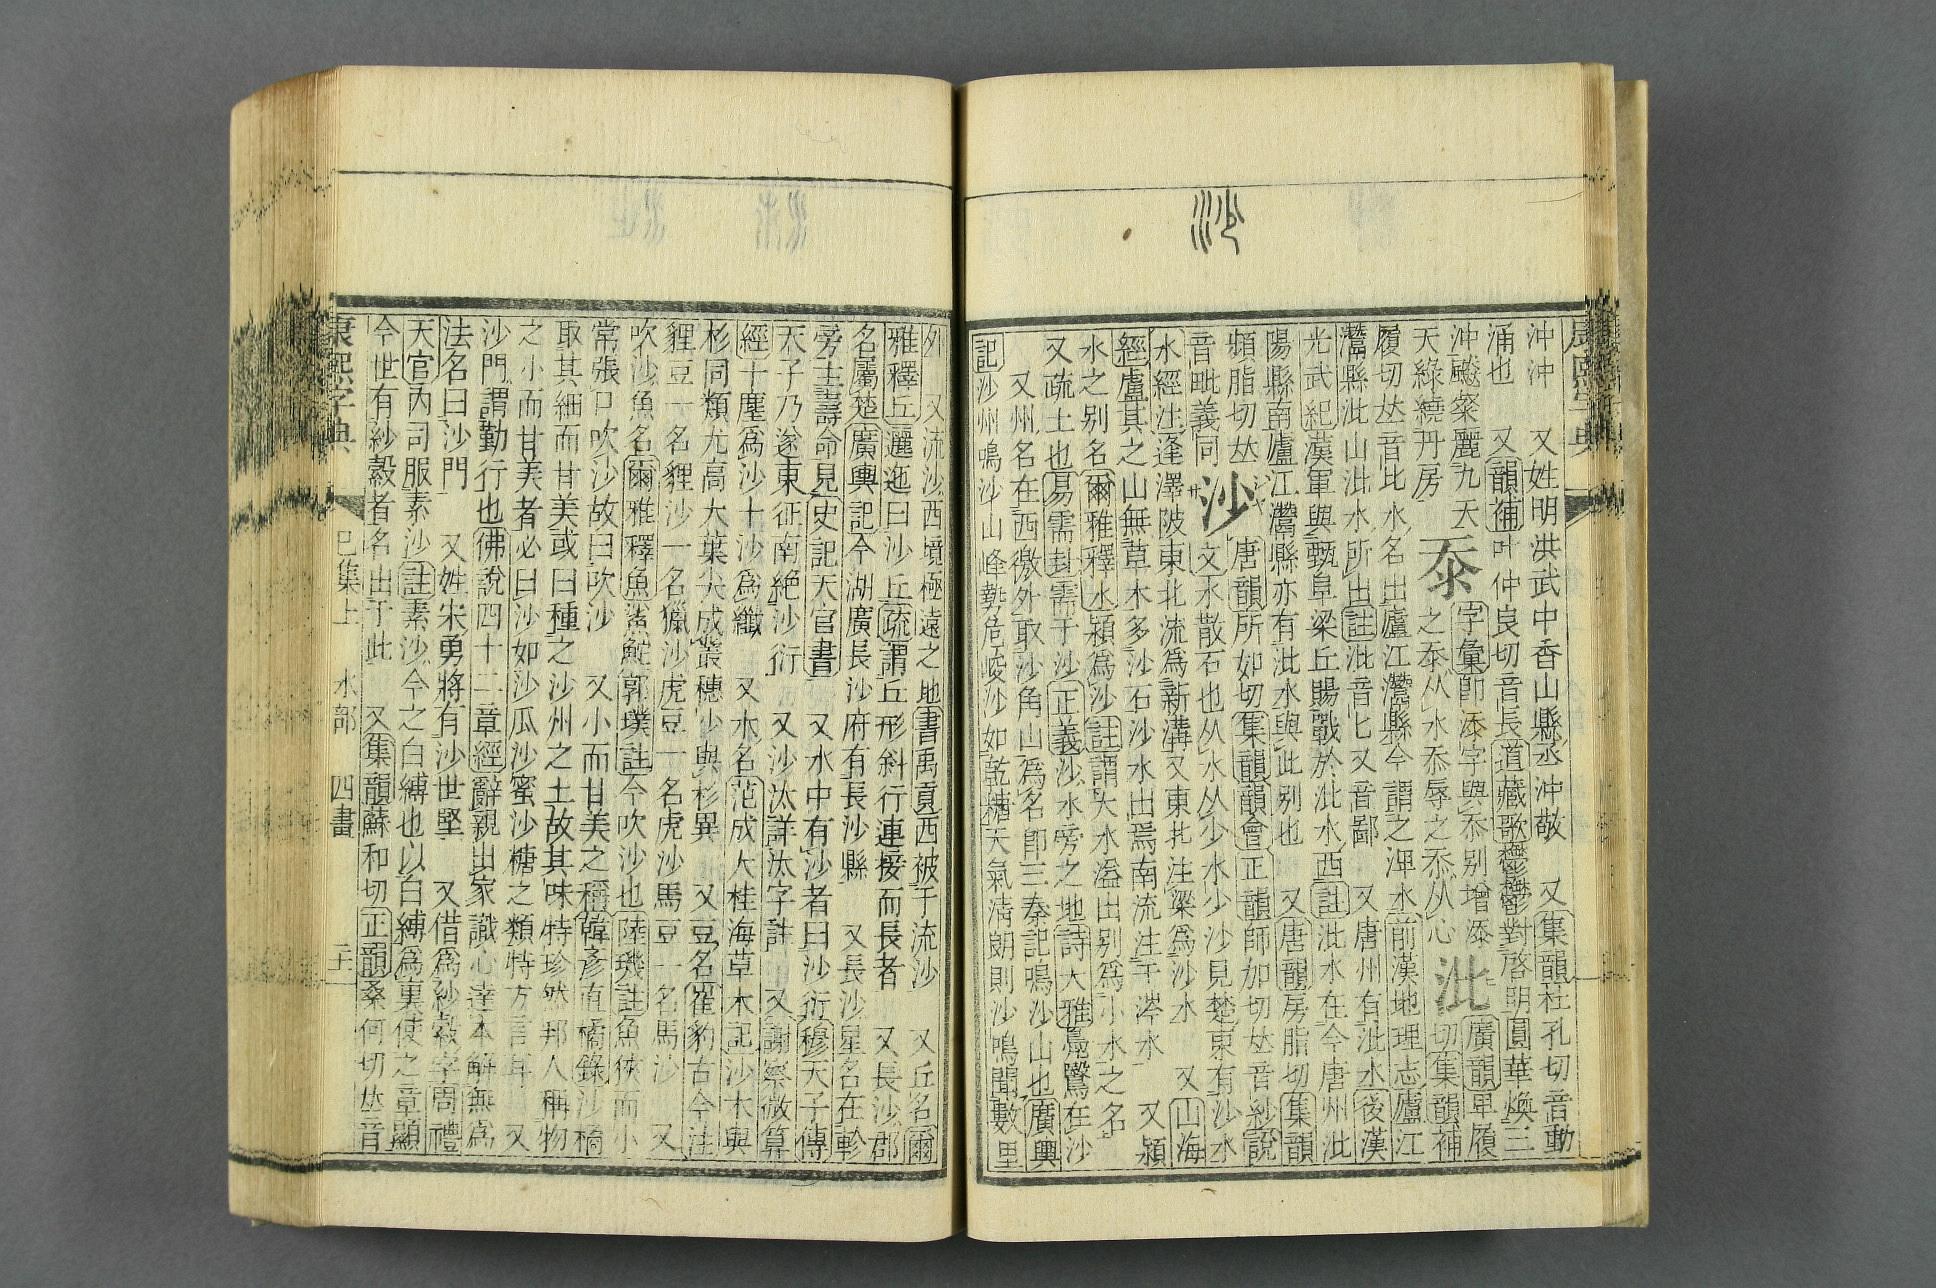 沙
康熙字典
沖沖　又姓明洪武中香山縣丞沖敬　又集韻杜孔切音動
涌也　又韻補叶仲良切音長道藏歌鬱鬱對啓明圓華煥三
沖飈粲麗九天
天綠繞丹房
忝
字彙卽添字與忝别增添
之忝从水忝辱之忝从心
沘
廣韻𤰞履
切集韻補
履切𠀤音比水名出廬江灊縣今謂之淠水前漢地理志廬江
灊縣沘山沘水所出註沘音匕又音鄙　又唐州有沘水後漢
光武紀漢軍與甄阜梁丘賜戰於沘水西註沘水在今唐州沘
陽縣南廬江灊縣亦有沘水與此别也　又唐韻房脂切集韻
頻脂切𠀤
音毗義同
沙
唐韻所如切集韻韻會正韻師加切𠀤音紗說
文水散石也从水从少水少沙見楚東有沙水
水經注逢澤陂東北流爲新溝又東北注梁爲沙水　又山海
經盧其之山無草木多沙石沙水出焉南流注于涔水　又潁
水之别名爾雅釋水潁爲沙註謂大水溢出别爲小水之名
又疏土也易需封需于沙正義沙水旁之地詩大雅鳧鷖在沙
又州名在西徼外取沙角山爲名卽三秦記鳴沙山也廣輿
記沙州鳴沙山峰勢危峻沙如乾糖天氣淸朗則沙鳴聞數里
外　又流沙西境極遠之地書禹貢西被于流沙　又丘名爾
雅釋丘邐迤曰沙丘疏謂丘形斜行連接而長者　又長沙郡
名屬楚廣輿記今湖廣長沙府有長沙縣　又長沙星名在軫
旁主壽命見史記天官書　又水中有沙者曰沙衍穆天子傳
天子乃遂東征南絕沙衍　又沙汰詳汰字註　又謝察微算
經十塵爲沙十沙爲纖　又木名范成大桂海草木記沙木與
杉同類尤高大葉尖成叢穗少與杉異　又豆名崔豹古今注
貍豆一名貍沙一名獵沙虎豆一名虎沙馬豆一名馬沙　又
吹沙魚名爾雅釋魚鯊鮀郭璞註今吹沙也陸璣註魚狹而小
常張口吹沙故曰吹沙　又小而甘美之稱韓彥直橘錄沙橘
取其細而甘美或曰種之沙州之土故其味特珍然邦人稱物
之小而甘美者必曰沙如沙瓜沙蜜沙糖之類特方言耳　又
沙門謂勤行也佛說四十二章經辭親出家識心達本解無爲
法名曰沙門　又姓宋勇將有沙世堅　又借爲紗縠字周禮
天官內司服素沙註素沙今之白縛也以白縛爲裏使之章顯
今世有紗縠者名出于此　又集韻蘇和切正韻桑何切𠀤音
康熙字典　巳集上　水部　四畫